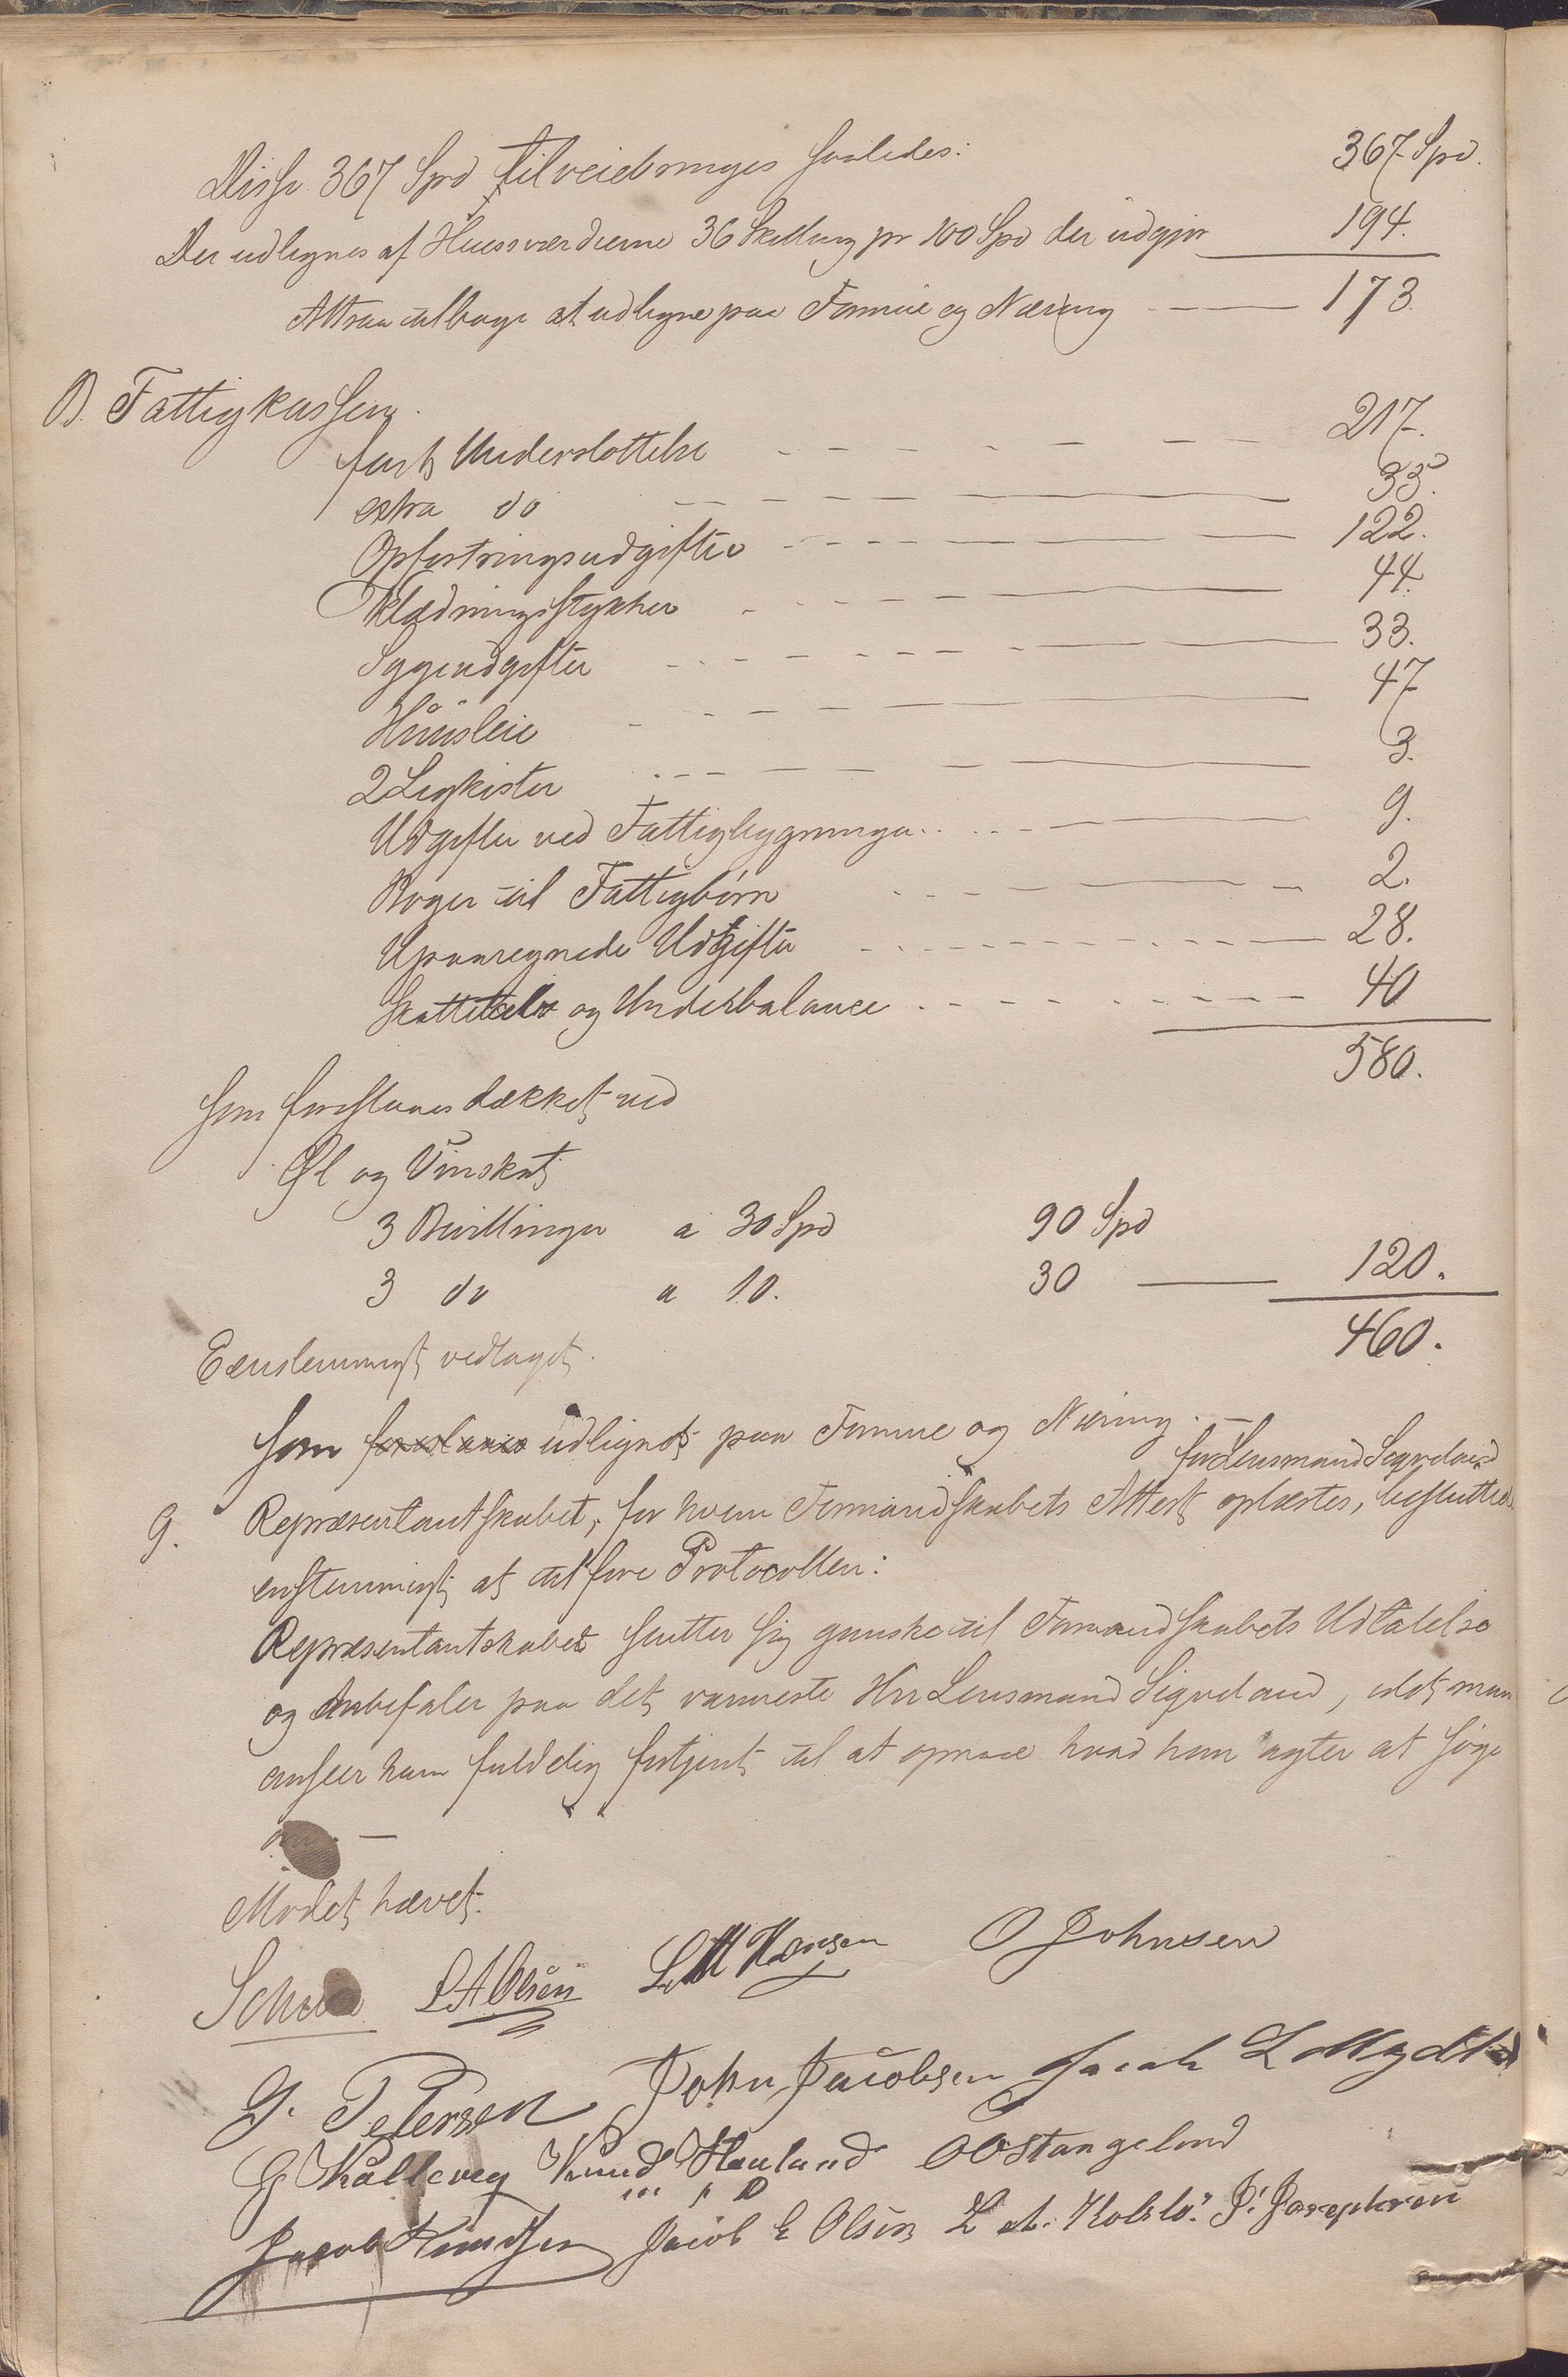 367 Spd.
Disse 367 Spd tilveiebringes saaledes:
Der udlignes af Huusværdierne 36 Skilling pr 100 Spd der udgjør 194.
Altsaa tilbage at udligne paa Formue og Næring 173.
B. Fattigkassen.
fast Understøttelse 217.
extra do 35.
Opfostringsudgifter 122.
Klædningsstykker 44.
Sygeudgifter 33.
Huusleie 47
2 Ligkister 3.
Udgifter ved Fattigbygningen 9.
Bøger til Fattigbørn 2.
Upaaregnede Udgifter 28.
Skattetab og Underbalance 40
580.
som foreslaaes dækket ved
Øl og Vinskat
3 Bevillinger a 30 Spd 90 Spd
3 do a 10. 30 120.
460.
Eenstemmigt vedtaget.
som foreslaaes udlignet paa Formue og Næring. —
for Lensmand Sigveland
9. Repræsentantskabet, for hvem Formandskabets Attest oplæstes, besluttede
enstemmigt at tilføre Protocollen:
Repræsentantskabet slutter sig ganske til Formandskabets Udtalelse
og Anbefaler paa det varmeste Hr Lensmand Sigveland, idet man
anseer ham fuldelig fortjent til at opnaae hvad han agter at søge
om. —
Mødet hævet.
L A Olsen L M Hansen O Johnsen
G. Petersen John Jacobsen Jacob L
G Kalleveg Knud Hauland O O Stangeland
Jacob Knudsen Jacob E Olsen L A. P. Josephsen